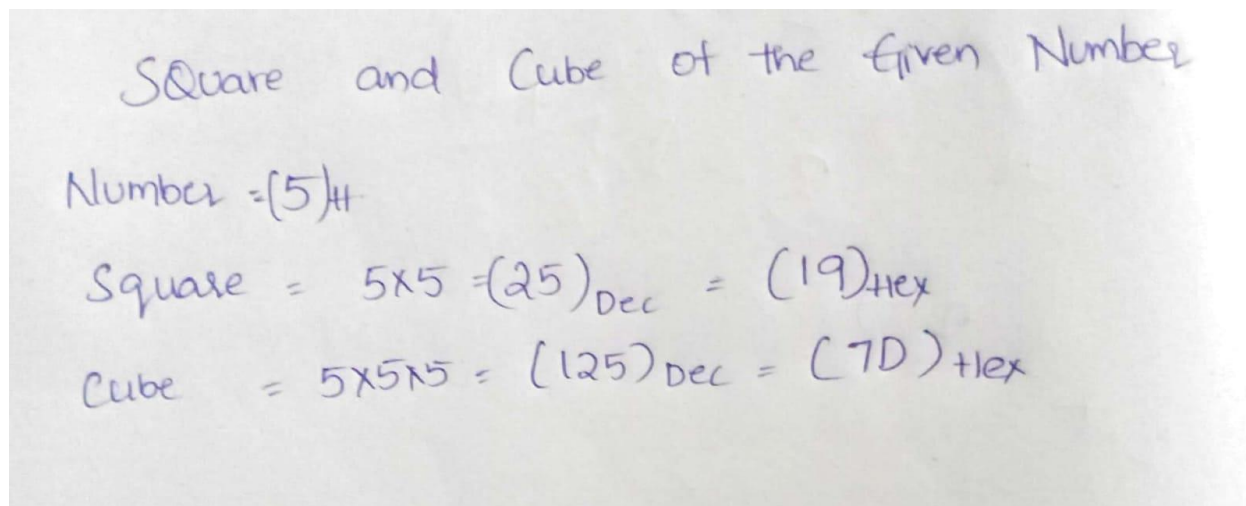 SQuare and Cube of the Given Number
Number =(5)H
Square = 5x5 =(25)Dec = (19)Hex
Cube = 5x5x5 = (125)Dec = (7D)Hex